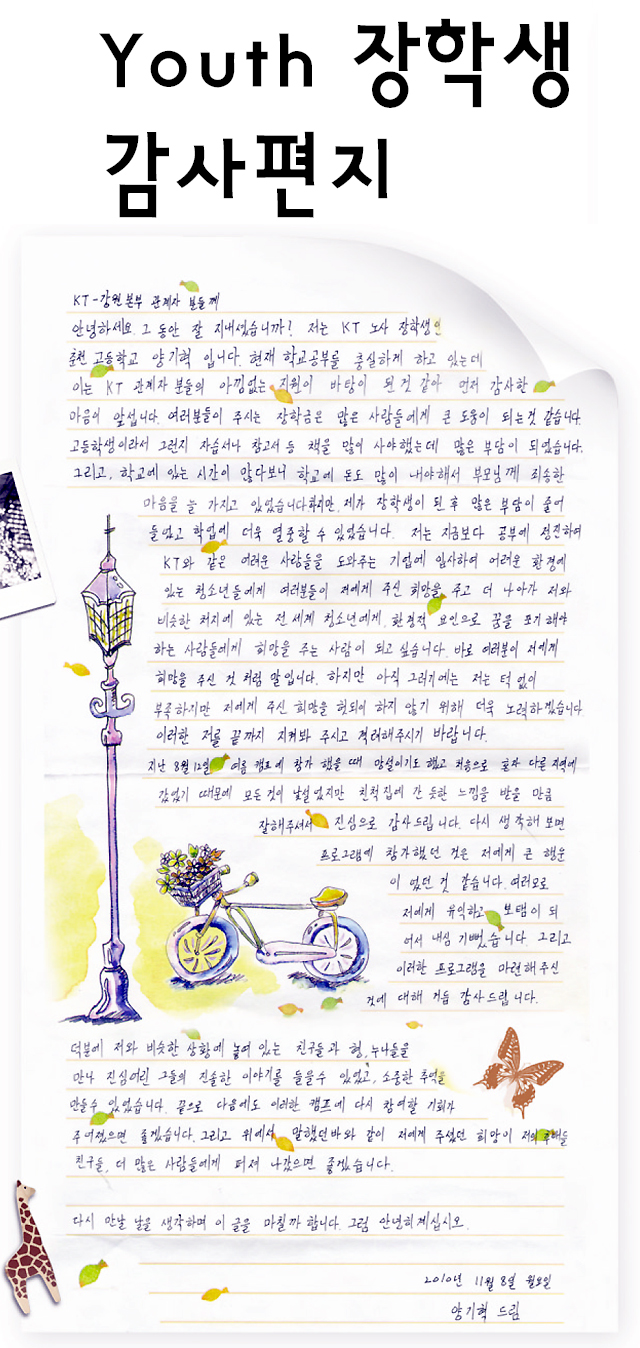 Youth 장학생
감사편지
KT-강원본부 관계자 분들께
안녕하세요. 그 동안 잘 지내셨습니까? 저는 KT 노사 장학생인
춘천 고등학교 양기혁 입니다. 현재 학교공부를 충실하게 하고 있는데
이는 KT 관계자 분들의 아낌없는 지원이 바탕이 된것 같아 먼저 감사한
마음이 앞섭니다. 여러분들이 주시는 장학금은 많은 사람들에게 큰 도움이 되는것 같습니다.
고등학생이라서 그런지 자습서나 참고서 등 책을 많이 사야했는데 많은 부담이 되었습니다.
그리고, 학교에 있는 시간이 많다보니 학교에 돈도 많이 내야해서 부모님께 죄송한
마음을 늘 가지고 있었습니다하지만, 제가 장학생이 된 후 많은 부담이 줄어
들었고 학업에 더욱 열중할 수 있었습니다. 저는 지금보다 공부에 정진하여
KT와 같은 어려운 사람들을 도와주는 기업에 입사하여 어려운 환경에
있는 청소년들에게 여러분들이 저에게 주신 희망을 주고 더 나아가 저와
비슷한 처지에 있는 전 세계 청소년에게, 환경적 요인으로 꿈을 포기해야
하는 사람들에게 희망을 주는 사람이 되고 싶습니다. 바로 여러분이 저에게
희망을 주신 것 처럼 말입니다. 하지만 아직 그러기에는 저는 턱 없이
부족하지만 저에게 주신 희망을 헛되이 하지 않기 위해 더욱 노력하겠습니다
이러한 저를 끝까지 지켜봐 주시고 격려해주시기 바랍니다.
지난 8월 12일 여름 캠프에 참가 했을 때 망설이기도 했고 처음으로 혼자 다른 지역에
갔었기 때문에 모든것이 낯설었지만 친척집에 간 듯한 느낌을 받을 만큼
잘해주셔서 진심으로 감사드립니다. 다시 생각해 보면
프로그램에 참가했던 것은 저에게 큰 행운
이 었던 것 같습니다. 여러모로
저에게 유익하고 보탬이 되
어서 내심 기뻤습니다. 그리고
이러한 프로그램을 마련해주신
것에 대해 거듭 감사드립니다.
덕분에 저와 비슷한 상황에 놓여 있는 친구들과 형, 누나들을
만나 진심어린 그들의 진솔한 이야기를 들을수 있었고, 소중한 추억을
만들수 있었습니다. 끝으로 다음에도 이러한 캠프에 다시 참여할 기회가
주어졌으면 좋겠습니다. 그리고 위에서 말했던바와 같이 저에게 주셨던 희망이 저의 후배들
친구들, 더 많은 사람들에게 퍼져 나갔으면 좋겠습니다.
다시 만날 날을 생각하며 이 글을 마칠까 합니다. 그럼 안녕히계십시오.
2010년 11월 8일 월요일
양기혁 드림